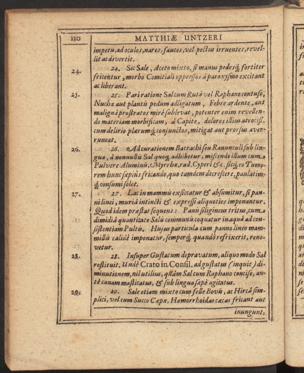 110 MATTHIÆ UNTZERI
impetu, ad oculos, nares, fauces, vel pectus irruentes, revel-
lit ac divertit.
24. 24. Sic Sale, Aceto mixto, si manus pedesq́; fortiter
fricentur, morbo Comitiali oppressos à paroxysmo excitant
ac liberant.
25. 25. Pari ratione Salcum Rutâ vel Raphano contuso,
Nuchæ aut plantis pedum alligatum, Febre ardente, aut
malignâ prostratos mirè sublevat, potenter enim revellen-
do materiam morbificam, à Capite, dolores illius atroces,
cum delirio plerumq́; conjunctos, mitigat aut prorsus aver-
runcat.
26. 26. Ad curationem Batrachi seu Ranunculi sub lin-
gua, à nonnullis Sal quoq́; adhibetur, miscendo illum cum
Pulvere Aluminis, Myrrhæ, rad. Cyperi &c. sicq́; Tumo-
rem hunc sæpius fricando, quo tandem decrescere, paulatim-
q́; consumi solet.
27. 27. Lac in mammis exsiccatur & absumitur, si pan-
nilinei, muriâ intincti & expressi aliquoties imponantur.
Quod idem præstat sequens: Panis siliginei tritus
dimidiâ quantitate Salis communis coquatur in aquâ ad con-
sistentiam Pultis. Hujus particula cum panno lineo mam-
millis calidè imponatur, semperq́; quando refrixerit, reno-
vetur.
28. 28. Insuper Gustatum depravatum, aliquo modo Sal
restituit. Undè Crato in Consil. ad gustatus (inquit) di-
minutionem, nil utilius, quàm Sal cum Raphano conciso, an-
tè cœnam masticatus, & sub lingua sæpè agitatus.
29. 29. Sale etiam mixto cum felle Bovis, ac Hircâ sim-
plici, vel cum Succo Cepæ, Hæmorrhoidas cæcas fricant aut
inungunt,